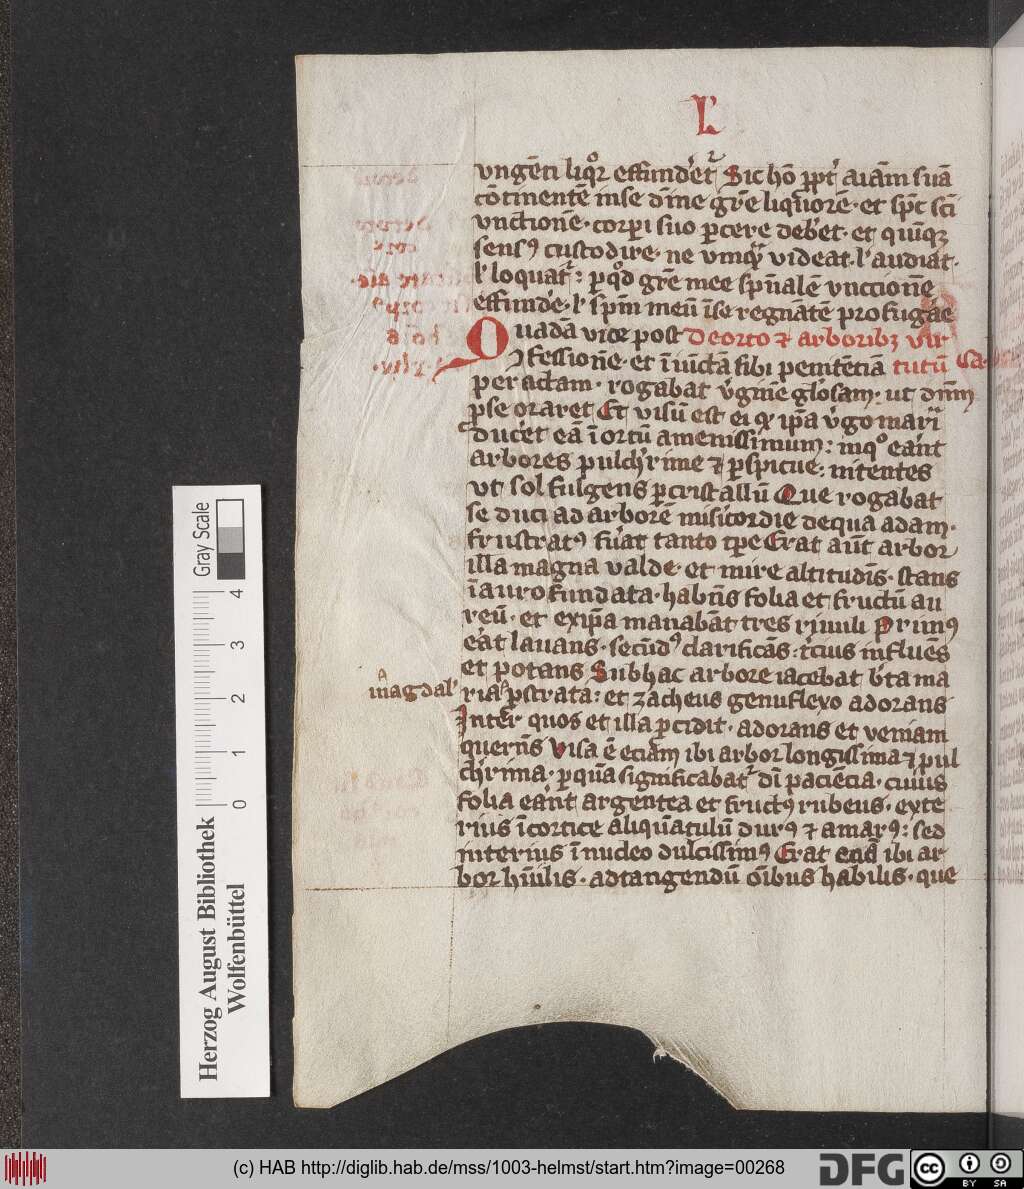 L'
vngēti liqͦr effund'et᷑ Sic hō ppt' aīam suā
cōtinentē in se diuīe gr̄e liquorē · et spc̄ sc̄i
vnctionē · corpori suo pcere debet · et quīqꝫ
sensꝯ custodire · ne vmqͣ videat · l' audiat ·
l' loquat᷑ : p qd̓ gr̄e mee spūalē vnctionē
effunde · l' spm̄ meū ī se regnātē profugāe
Quadā vice post De orto ⁊ arboribꝫ vir
ꝯfessionē · et īiūctā sibi penitētiā tutū Ca
peractam · rogabat v'ginē gl'osam · ut dn̄m
pse oraret Et visū est ei qꝫ ip̄a v'go maria
duc'et eā ī ortū amenissimum : in qͦ erāt
arbores pulch'rime ⁊ pspicue : nitentes
vt sol fulgens p cristallū Que rogabat
se duci ad arborē mis'icordie de qua adam ·
frustratꝯ fu'at tanto tp̄e Erat aūt arbor
illa magna valde · et mire altitudīs · stans
ī auro fundata · habn̄s folia et fructū au
reū · et ex ip̄a manabāt tres riuuli Primꝯ
e'at lauans · secūdꝯ clarificās : t'cius influēs
et potans Sub hac arbore iacebat b'ta ma
magdal'
ria pstrata : et zacheus genuflexo adorans
Inter quos et illa pcidit · adorans et veniam
quern̄s Visa ē eciam ibi arbor longissima ⁊ pul
ch'rima · p quā significabat᷑ dī paciēcia · cuius
folia e'ant argentea et fructꝯ rubeus · exte
rius ī cortice aliquātulū durꝯ ⁊ amarꝯ : sed
interius ī nucleo dulcissimꝯ Erat ecīā ibi ar
bor hūilis · ad tangendū oībus habilis · que
Herzog August Bibliothek
Wolfenbüttel
0 1 2 3 4
Gray Scale
(c) HAB http://diglib.hab.de/mss/1003-helmst/start.htm?image=00268
DFG
cc BY SA